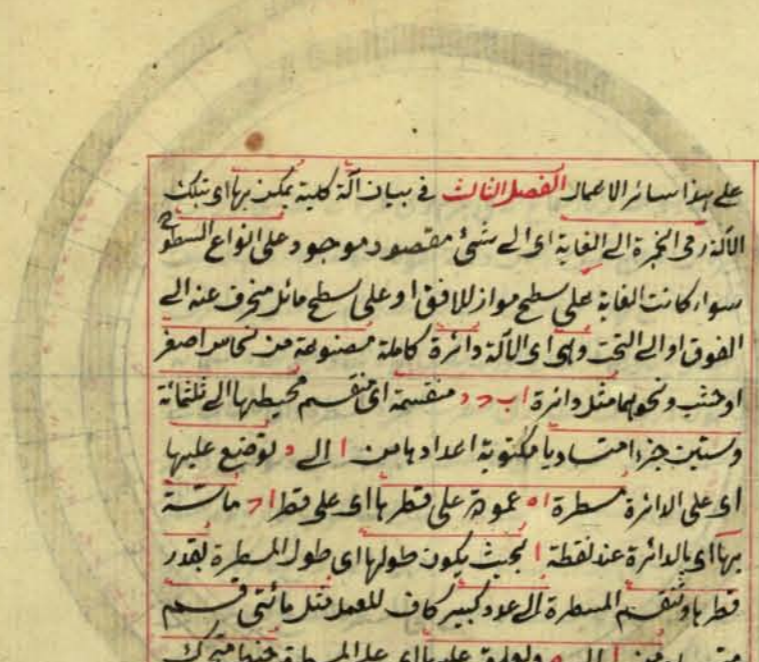 على هذا سائر الاعمال الفصل الثالث في بيان آلة كلية يمكن بها اى بتلك
الآلة رمى الخمبرة الى الغاية اى الى شئ مقصود موجود على انواع السطوح
سواء كانت الغاية على سطح مواز للافق او على سطح مائل منحرف عنه الى
الفوق او الى التحت وهى اى الآلة دائرة كاملة مصنوعة من نحاس اصفر
او خشب ونحوهما مثل دائرة ا ب ح د منقسمة اى منقسم محيطها الى ثلثمائة
وستين جزءا متساويا مكتوبة اعدادها من ا الى د توضع عليها
اى على الدائرة مسطرة ا ه عمودة على قطرها اى على قطر ا ح ماسة
بها اى بالدائرة عند نقطة ا بحيث يكون طولها اى طول المسطرة بقدر
قطرها وتنقسم المسطرة الى عدد كبير كاف للعمل مثل مائتى قسم
من ا الى ه ويعلق عليها اى على المسطرة متحرك